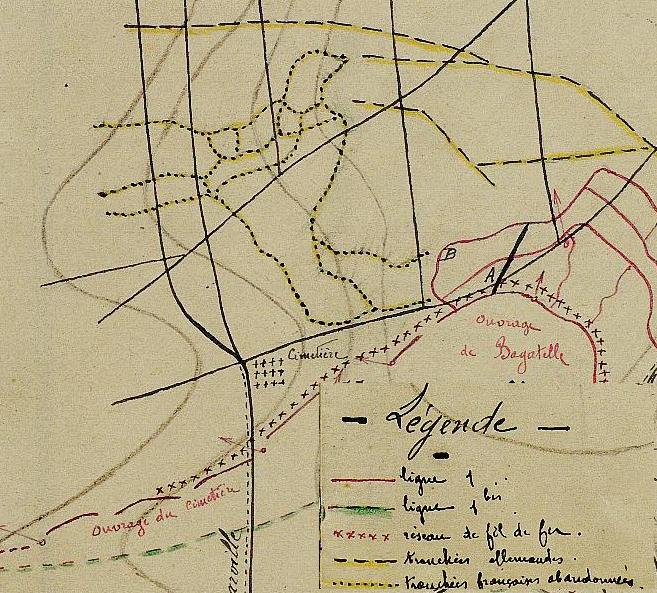 B
A
Ouvrage
de Bagatelle
Cimetière
Ouvrage du Cimetière
— Légende —
ligne 1
ligne 1 bis
réseau de fil de fer.
tranchées allemandes.
tranchées françaises abandonnées.